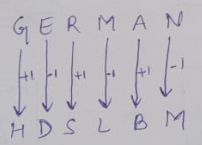 G E R M A N
+1 -1 +1 -1 +1 -1
H D S L B M